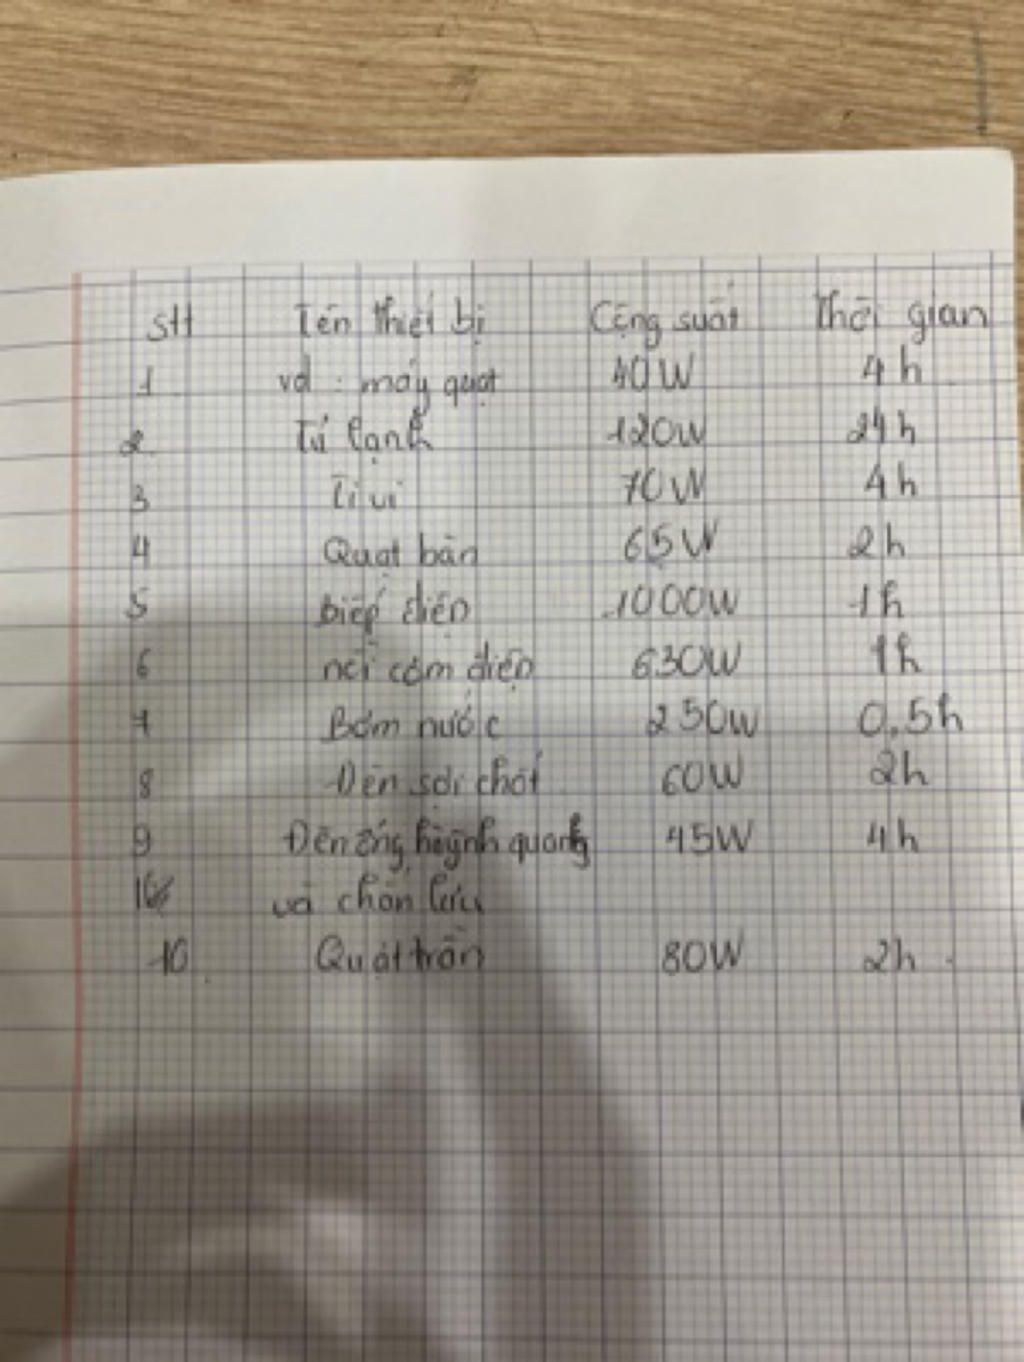 Stt Tên thiết bị Công suất Thời gian
1 vd : máy quạt 40W 4h
2 Tủ lạnh 120W 24h
3 Ti vi 70W 4h
4 Quạt bàn 65W 2h
5 biếp điện 1000W 1h
6 nồi cơm điện 630W 1h
7 Bơm nước 250W 0,5h
8 Đèn sợi chốt 60W 2h
9 Đèn ống huỳnh quang 45W 4h
và chấn lưu
10 Quạt trần 80W 2h